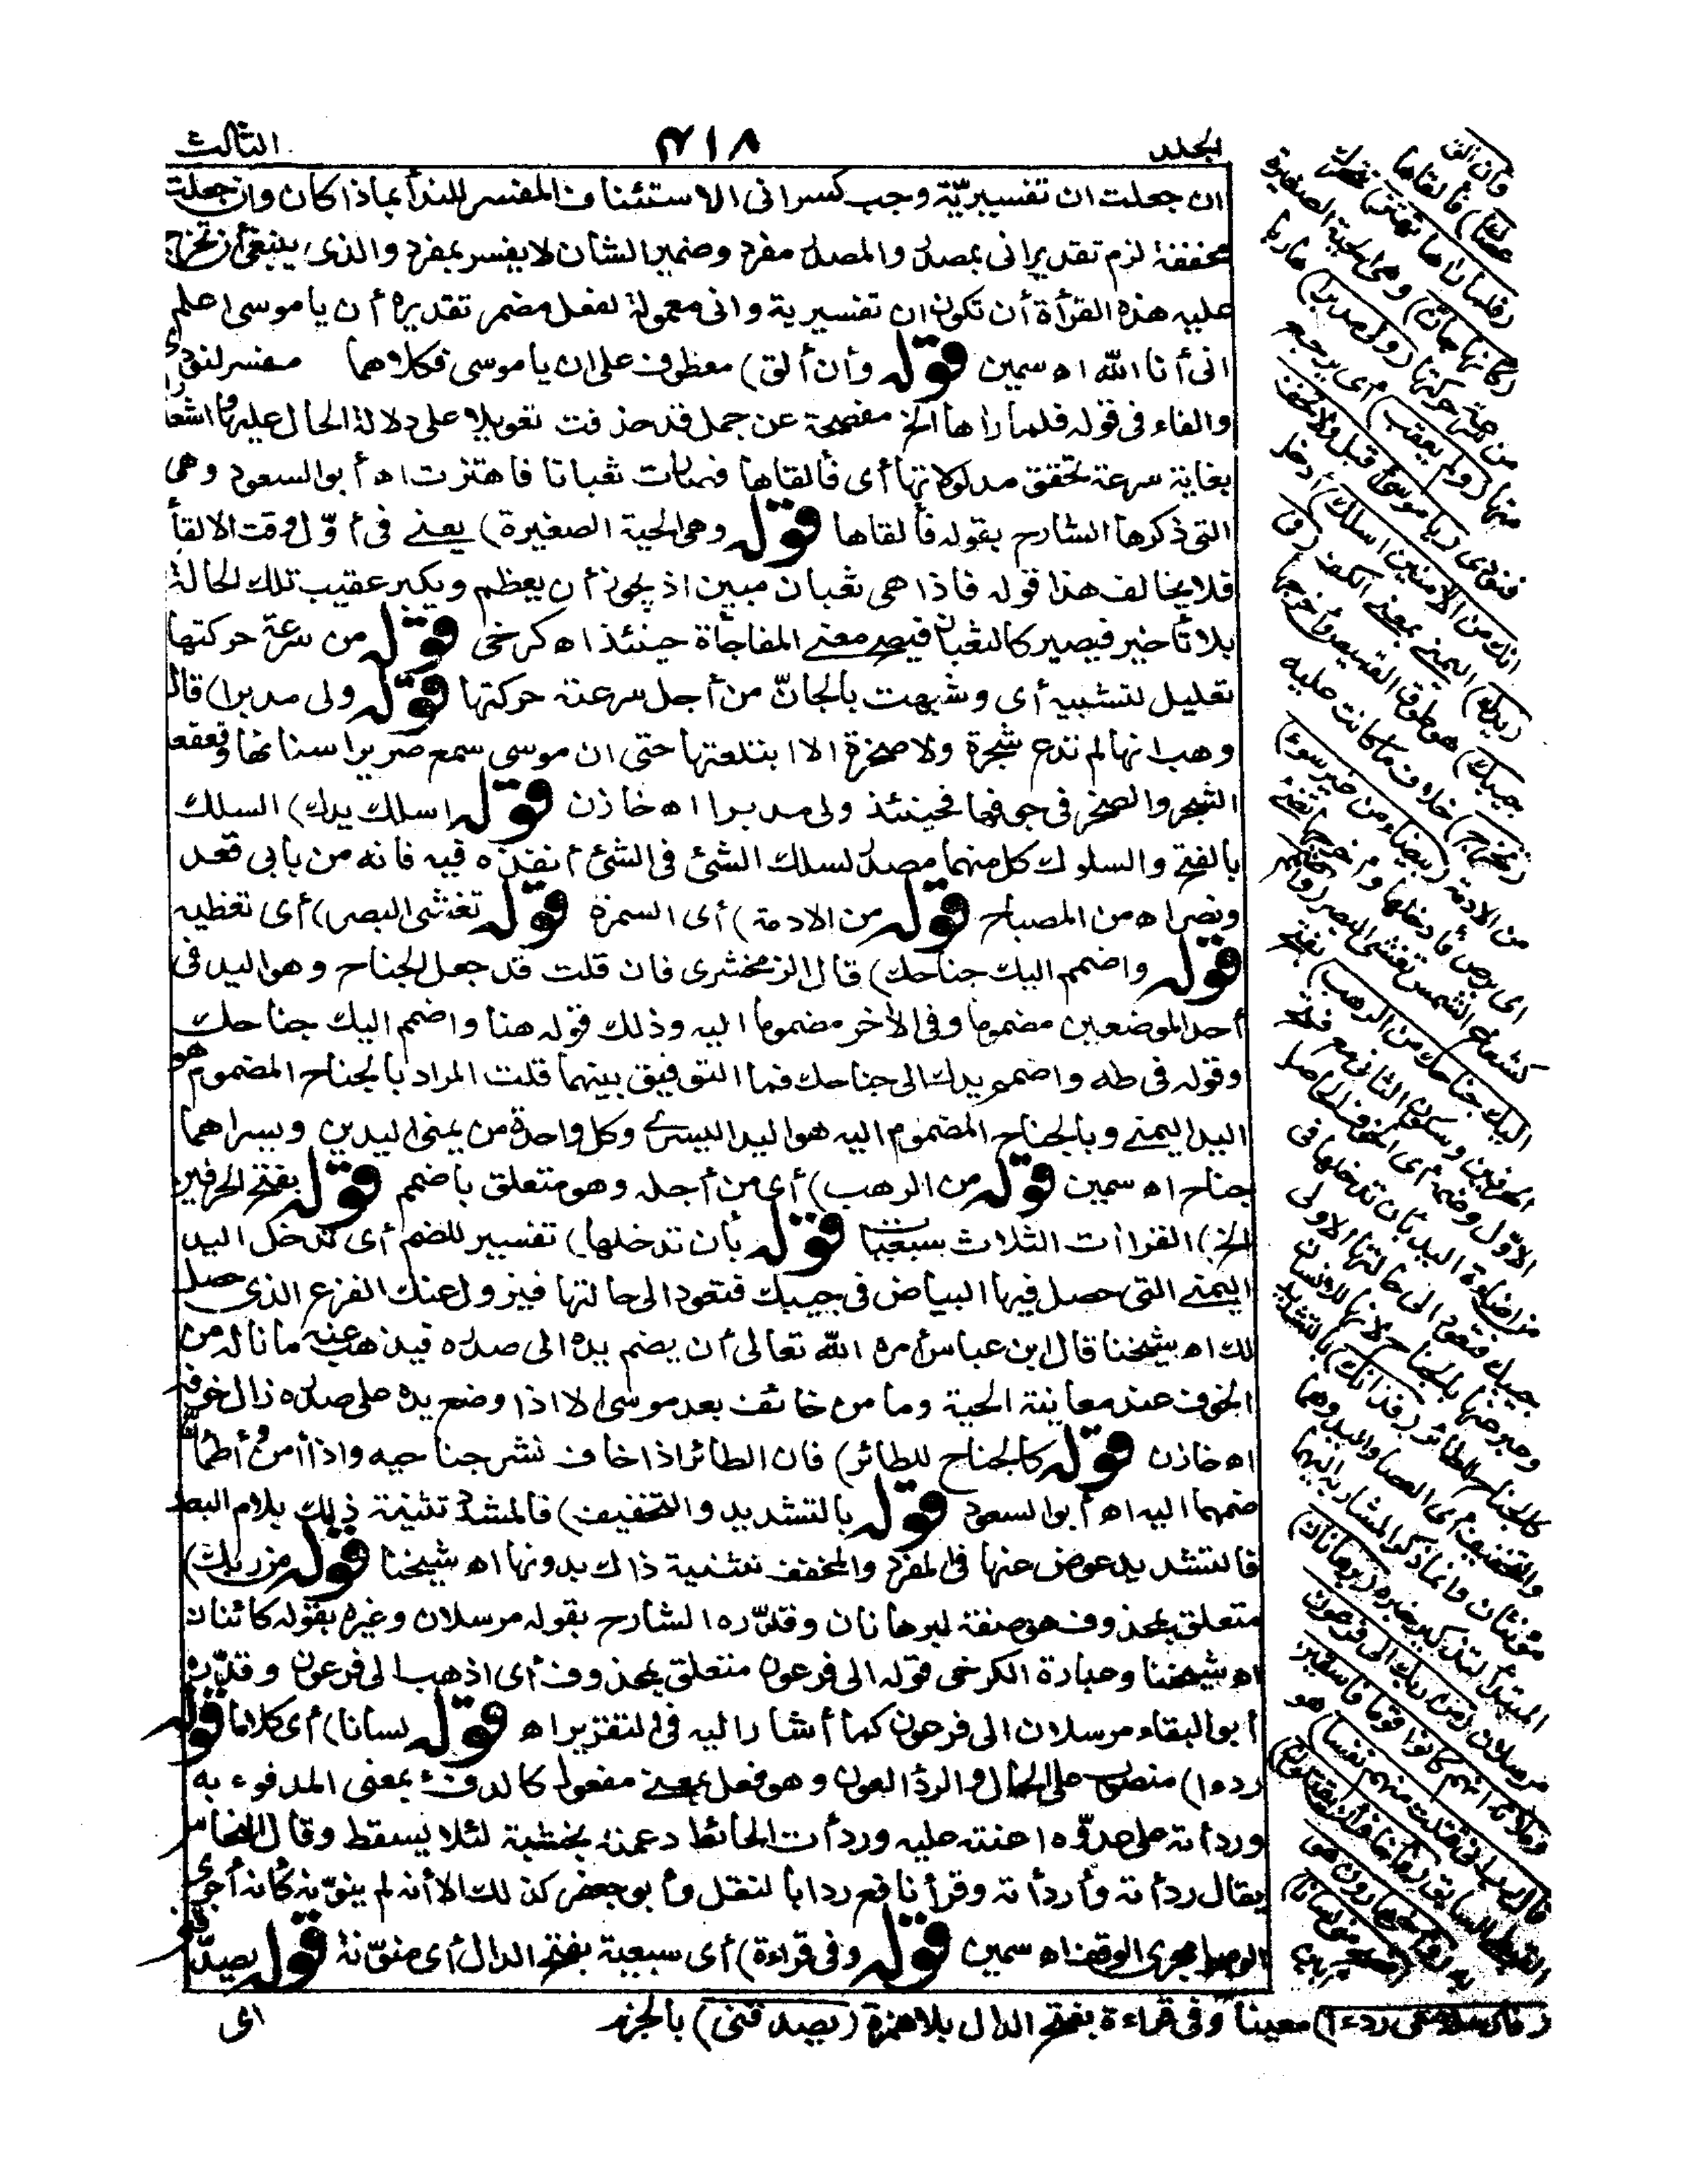 الجلد ٤١٨ الثالث
ان جعلت ان تفسيريّة وجب كسرانى الاستئناف المفسر للندأ بماذا كان وان جعلت
مخففة لزم تقديرانى بمصدر والمصدر مفرد وضمير الشان لا يفسر بمفرد والذى ينبغى أن تخرج
عليه هذه القرأة أن تكون ان تفسيرية وانى معمولة لفعل مضمر تقديره أن يا موسى اعلم
انى أنا الله اه سمين قوله وأن ألق) معطوف على ان يا موسى فكلاهما مفسر لنودى
والفاء فى قوله فلما راها الخ مفصحة عن جمل قد حذفت تعويلا على دلالة الحال عليها واشعارا
بغاية سرعة تحقق مدلولاتها أى فألقاها فصارت ثعبانا فاهتزت اه أبو السعود وهى
التى ذكرها الشارح بقوله فألقاها قوله وهى الحية الصغيرة) يعنے فى أوّل وقت الالقأ
فلا يخالف هذا قوله فاذا هى ثعبان مبين اذ يجوز أن يعظم ويكبر عقيب تلك الحالة
بلا تأخير فيصير كالثعبان فيصح معنے المفاجأة حينئذ اه كرخى قوله من سرعة حركتها
تعليل لتشبيه أى وشبهت بالجانّ من أجل سرعة حركتها قوله ولى مدبرا) قال
وهب انها لم تدع شجرة ولا صخرة الا ابتلعتها حتى ان موسى سمع صريرا سنانها وقعقعة
الشجر والصخر فى جوفها فحينئذ ولى مدبرا اه خازن قوله اسلك يدك) السلك
بالفتح والسلوك كل منهما مصدر لسلك الشئ فى الشئ أنفذه فيه فانه من بابى قعد
ونصر اه من المصباح قوله من الادمة) أى السمرة قوله تغشى البصر) أى تغطيه
قوله واضمم اليك جناحك) قال الزمخشرى فان قلت قد جعل الجناح وهو اليد فى
أحد الموضعين مضموما وفى الأخر مضموما اليه وذلك قوله هنا واضمم اليك جناحك
وقوله فى طه واضمم يدك الى جناحك فما التوفيق بينهما قلت المراد بالجناح المضموم هو
اليد اليمنے وبالجناح المضموم اليه هو اليد اليسرے وكل واحدة من يمنى اليدين ويسراهما
جناح اه سمين قوله من الرهب) أى من أجله وهو متعلق باضمم قوله بفتح الحرفين
الخ) القراأت الثلاث سبعية قوله بأن تدخلها) تفسير للضم أى تدخل اليد
اليمنے التى حصل فيها البياض فى جيبك فتعود الى حالتها فيزول عنك الفزع الذى حصل
لك اه شيخنا قال ابن عباس أمره الله تعالى أن يضم يده الى صدره فيذهب عنه ما ناله من
الخوف عند معاينة الحية وما من خائف بعد موسى الا اذا وضع يده على صدره زال خوفه
اه خازن قوله كالجناح للطائر) فان الطائر اذا خاف نشر جناحيه واذا أمن وأطمأن
ضمهما اليه اه أبو السعود قوله بالتشديد والتخفيف) فالمشدد تثنية ذلك بلام البعد
فالتشديد عوض عنها فى المفرد والمخفف تثنية ذاك بدونها اه شيخنا قوله من ربك)
متعلق بمحذوف هو صفة لبرهانان وقدّره الشارح بقوله مرسلان وغيره بقوله كائنان
اه شيخنا وعبارة الكرخى قوله الى فرعون متعلق بمحذوف أى اذهب الى فرعون وقدّره
أبو البقاء مرسلان الى فرعون كما أشار اليه فى التقرير اه قوله لسانا) أى كلاما قوله
ردءا) منصوب على الحال والردأ العون وهو فعل بمعنے مفعول كالدفء بمعنى المدفوء به
وردأته على عدوّه اعنته عليه وردأت الحائط دعمته بخشبة لئلا يسقط وقال النحاس
يقال ردأته وأردأته وقرأ نافع ردا بالنقل وأبو جعفر كذلك الا أنه لم ينوّنه كأنه أجرى
الوصل مجرى الوقف اه سمين قوله وفى قراءة) أى سبعية بفتح الدال أى منوّنة قوله يصدّقنى
وان ألق
عصاك) فألقاها
(فلما راها تهتز) تتحرك
(كأنها جانّ) وهى الحية الصغيرة
من سرعة حركتها (ولى مدبرا) هاربا
منها (ولم يعقب) أى يرجع
فنودى (يا موسى أقبل ولا تخف
انك من الأمنين اسلك) أدخل
(يدك) اليمنے بمعنے الكف (فى
جيبك) هو طوق القميص وأخرجها
(تخرج) خلاف ما كانت عليه
من الادمة (بيضاء من غير سوء)
اى برص فأدخلها وأخرجها تضئ
كشعاع الشمس تغشى البصر (واضمم
اليك جناحك من الرهب) بفتح
الحرفين وسكون الثانى مع فتح
الاوّل وضمه أى الخوف الحاصل
من اضاءة اليد بأن تدخلها فى
جيبك فتعود الى حالتها الاولى
وعبر عنها بالجناح لانها للانسان
كالجناح للطائر (فذانك) بالتشديد
والتخفيف أى العصا واليد وهما
مؤنثان وانما ذكر المشار به اليهما
المبتدأ لتذكير خبره (برهانان)
مرسلان (من ربك الى فرعون
وملائه انهم كانوا قوما فاسقين
قال رب انى قتلت منهم نفسا) هو
القبطى السابق (فأخاف أن يقتلون)
به (وأخى هارون هو
أفصح منى لسانا) أبين
(فأرسله معى ردءا) معينا وفى قراءة بفتح الدال بلا همزة (يصدقنى) بالجزم
اى